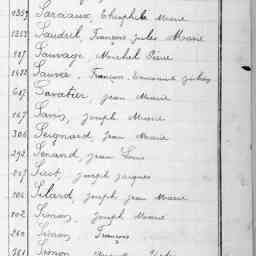 1359 Sarciaux, Théophile Marie
1258 Saudril, François Jules Marie
187 Sauvage, Michel Pierre
Sauvée, François
687 Savatier, Jean Marie
167 Sans, Joseph Marie
306 Seignard, Jean Marie
292 Senand, Jean Louis
267 Siet, Joseph Jacques
206 Silard, Joseph Jean Marie
802 Simon, Joseph Marie
260 Simon François
781 Simon